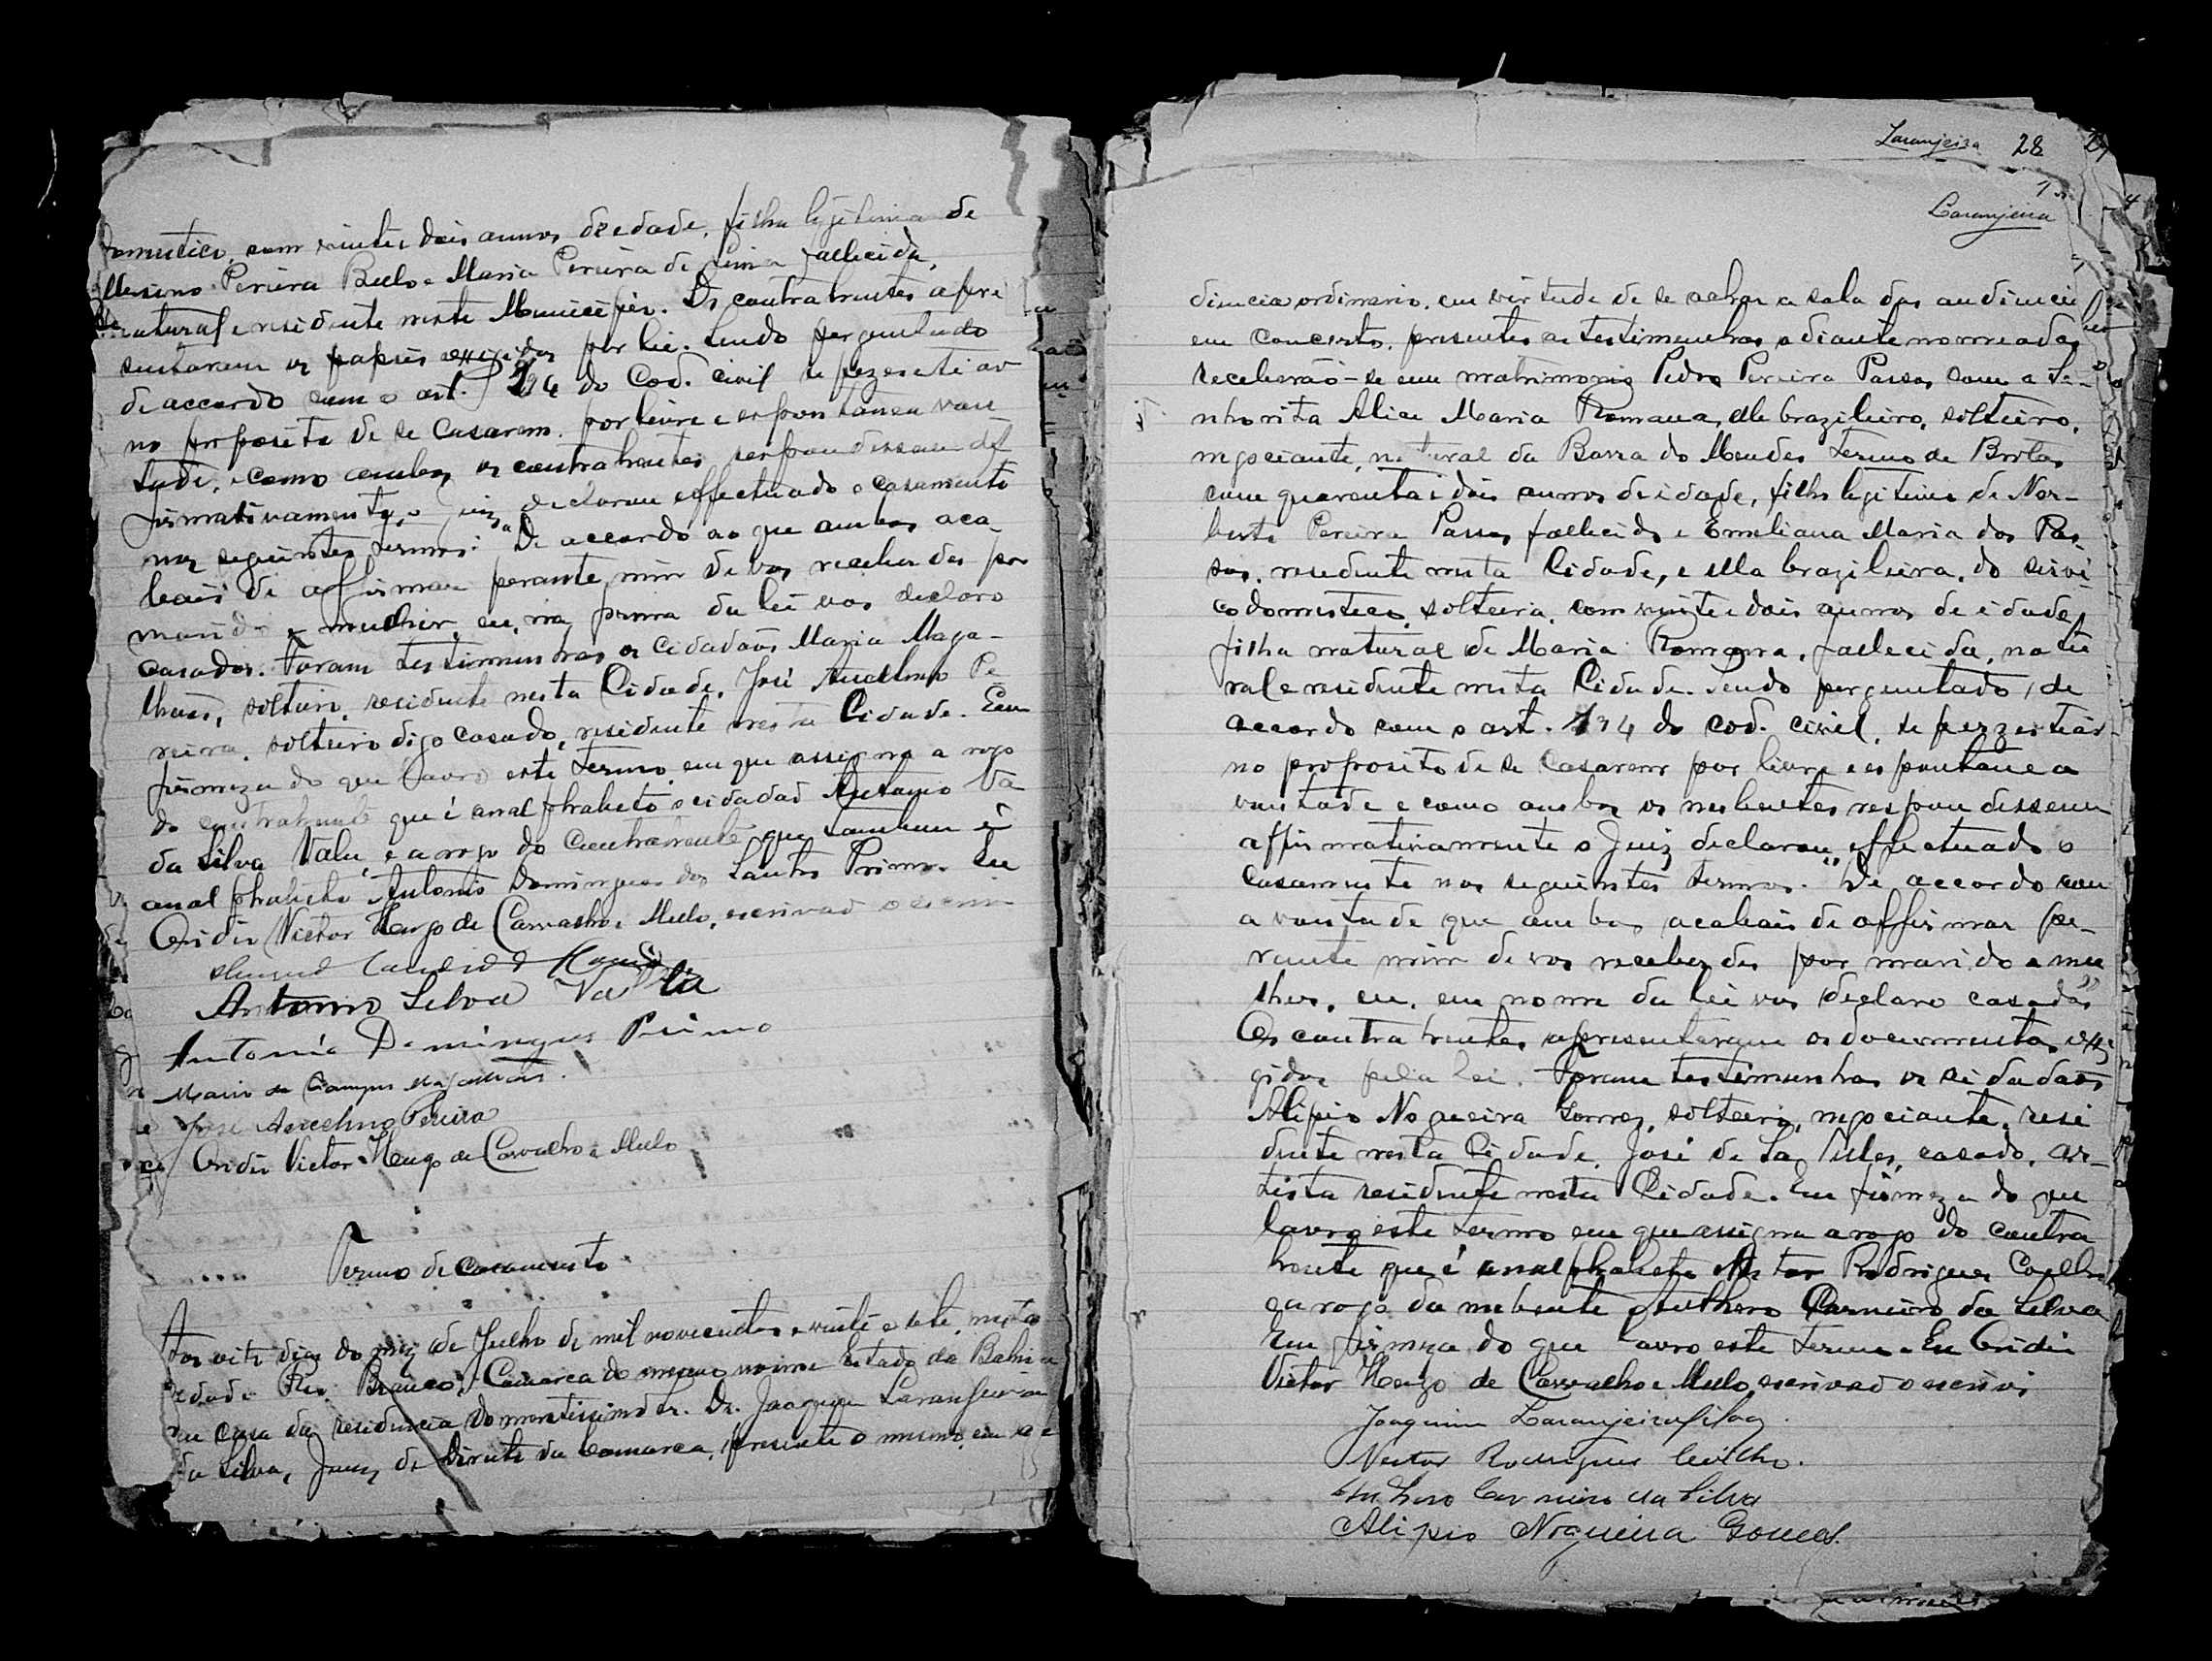 domestico, com vinte e dois annos de edade, filha legitima de
Pereira Bello e Maria Pereira de Lima fallecida,
natural e residente neste Municipio. Os contrahentes apre
sentaram os papeis exigidos por lei. Sendo perguntado
de accordo com o art. 194 do Cod. civil se persestiao
no proposito de se casarem por livre e espontanea von
tade, e como ambos os contrahentes respondessem af
firmativamente, o juiz declarou effectuado o casamento
nos seguintes termos: "De accordo ao que ambos aca-
bais de affirmar perante mim de vos receberdes por
marido e mulher, eu, na forma da lei vos declaro
casados. Foram testimunhas os cidadaõs Mario Maga-
lhaes, solteiro, residente nesta Cidade, José Ancelmo Pe
reira, solteiro digo casado, residente nesta Cidade. Em
firmeza do que lavro este termo em que assigna a rogo
do contrahente que é analphabeto o cidadaõ Antonio
da Silva e a rogo da contrahente que tambem é
analphabeta Antonio Domingues dos Santos Primo. Eu
Ovidio Victor Hugo de Carvalho e Mello, escrivaõ o escrevi
Candido
Antonio Silva
Antonio Domingues Primo
Mario de Campos Magalhaes.
José Ancelmo Pereira
Ovidio Victor Hugo de Carvalho e Mello
Termo de casamento
Aos oito dias do mez de Julho de mil novecentos e vinte e sete, nesta
cidade Rio Branco, Comarca do mesmo nome Estado da Bahia
em casa da residencia do meretissimo Sr. Dr. Joaquim Laranjeira
da Silva, Juiz de Direito da Comarca, presente o mesmo, em
Laranjeira 28
Laranjeira
diencia ordinaria, em virtude de se achar a sala das audiencia
em concerto, presentes as testimunhas adiante nomeadas
receberaõ-se em matrimonio Pedro Pereira Passos, com a Se-
nhorita Alice Maria Romana, elle brazileiro, solteiro,
negociante, natural da Barra do Mendes termo de Brotas
com quarenta e dois annos de idade, filho legitimo de Nor-
berto Pereira Passos fallecido e Emiliana Maria dos Pas-
sos, residente nesta Cidade, e ella brazileira, do servi
ço domestico, solteira, com vinte e dois annos de idade,
filha natural de Maria Romana, fallecida, natu
ral e residente nesta Cidade. Sendo perguntado, de
accordo com o art. 194 do cod. civil, se persestiaõ
no proposito de se casarem por livre e espontanea
vontade e como ambos os nubentes respondessem
affirmativamente o Juiz declarou effectuado o
casamento nos seguintes termos. "De accordo com
a vontade que ambos acabais de affirmar pe-
rante mim de vos receberdes por marido e mu
lher, eu, em nome da lei vos declaro casados"
Os contrahentes apresentaram os documentos exi
gidos pela lei. Foram testimunhas os cidadaõs
Alipio Nogueira Gomes, solteiro, negociante, resi
dente nesta Cidade, José de Sa Telles, casado, ar-
tista residente nesta Cidade. Em firmeza do que
lavro este termo em que assigna a rogo do contra
hente que é analphabeto Nestor Rodrigues Coelho
e a rogo da nubente Anthero Carneiro da Silva
Em firmeza do que lavro este termo. Eu Ovidio
Victor Hugo de Carvalho e Mello, escrivaõ o escrevi
Joaquim Laranjeira Silva
Nestor Rodrigues Coelho.
Anthero Carneiro da Silva
Alipio Nogueira Gomes.